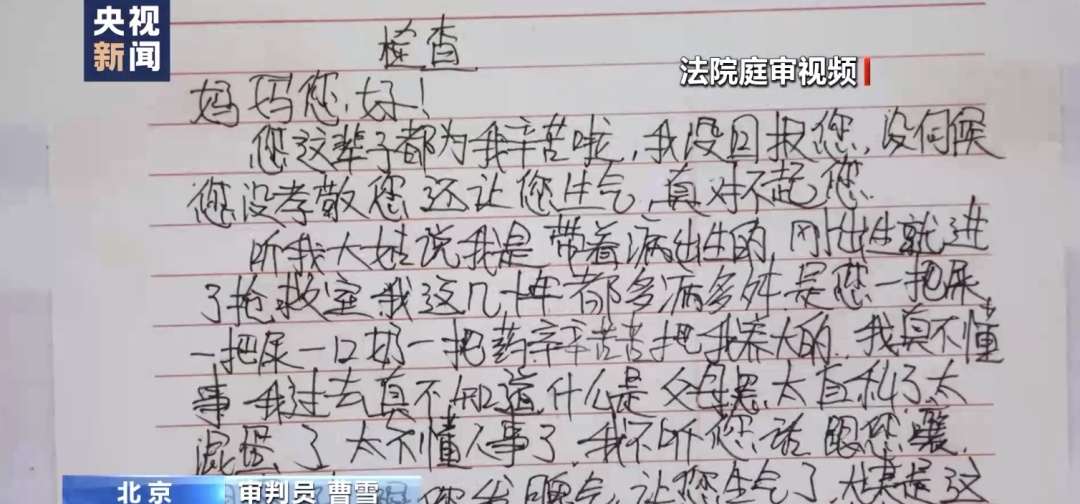 央视
新闻
检查
法院庭审视频
妈妈您,好!
您这辈子都为我辛苦啦,我没回报您,没伺候
您没孝敬您还让您生气,真对不起您
听我大姑说我是带着病出生的 刚出生就进
了抢救室.我这几十年都多病多灾 是您一把屎
一把尿一口奶一把药辛辛苦苦把我养大的,我真不懂
事 我过去真不知道,什么是父母恩,太自私了,太
混蛋了 太不懂人事了,我不听您话 跟您嚷,
您我气,让您生气了,是这
北京
审判员 曹雪